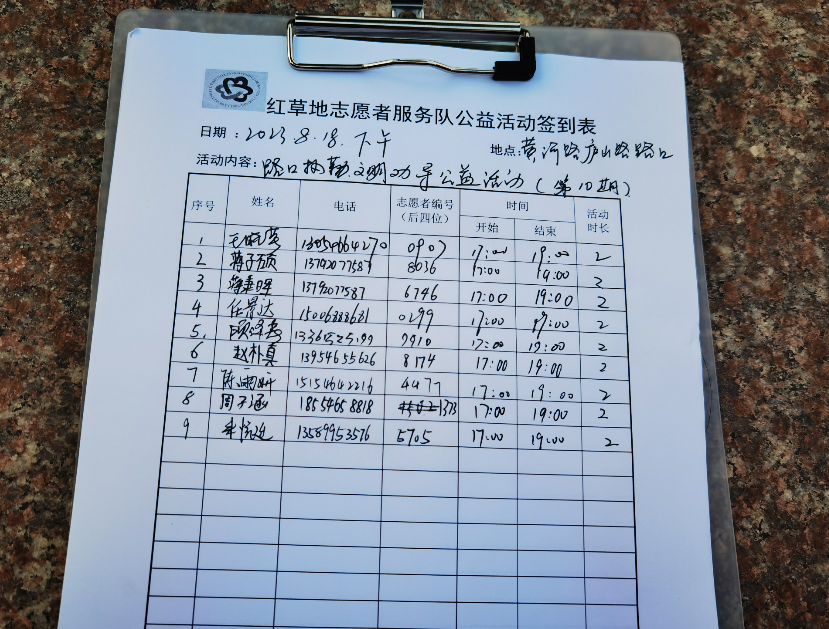 红草地志愿者服务队公益活动签到表
日期：2023.8.18.下午 地点：黄河路庐山路路口
活动内容：路口执勤文明劝导公益活动（第10期）
序号 姓名 电话 志愿者编号（后四位） 时间 活动时长
开始 结束
1 0907 17:00 19:00 2
2 8036 17:00 19:00 2
3 6746 17:00 19:00 2
4 任景达 15006888681 0299 17:00 19:00 2
5 17:00 19:00 2
6 赵朴真 13954655626 8174 17:00 19:00 2
7 15154642216 4477 17:00 19:00 2
8 周子涵 18554658818 1373 17:00 19:00 2
9 13589953576 5705 17:00 19:00 2